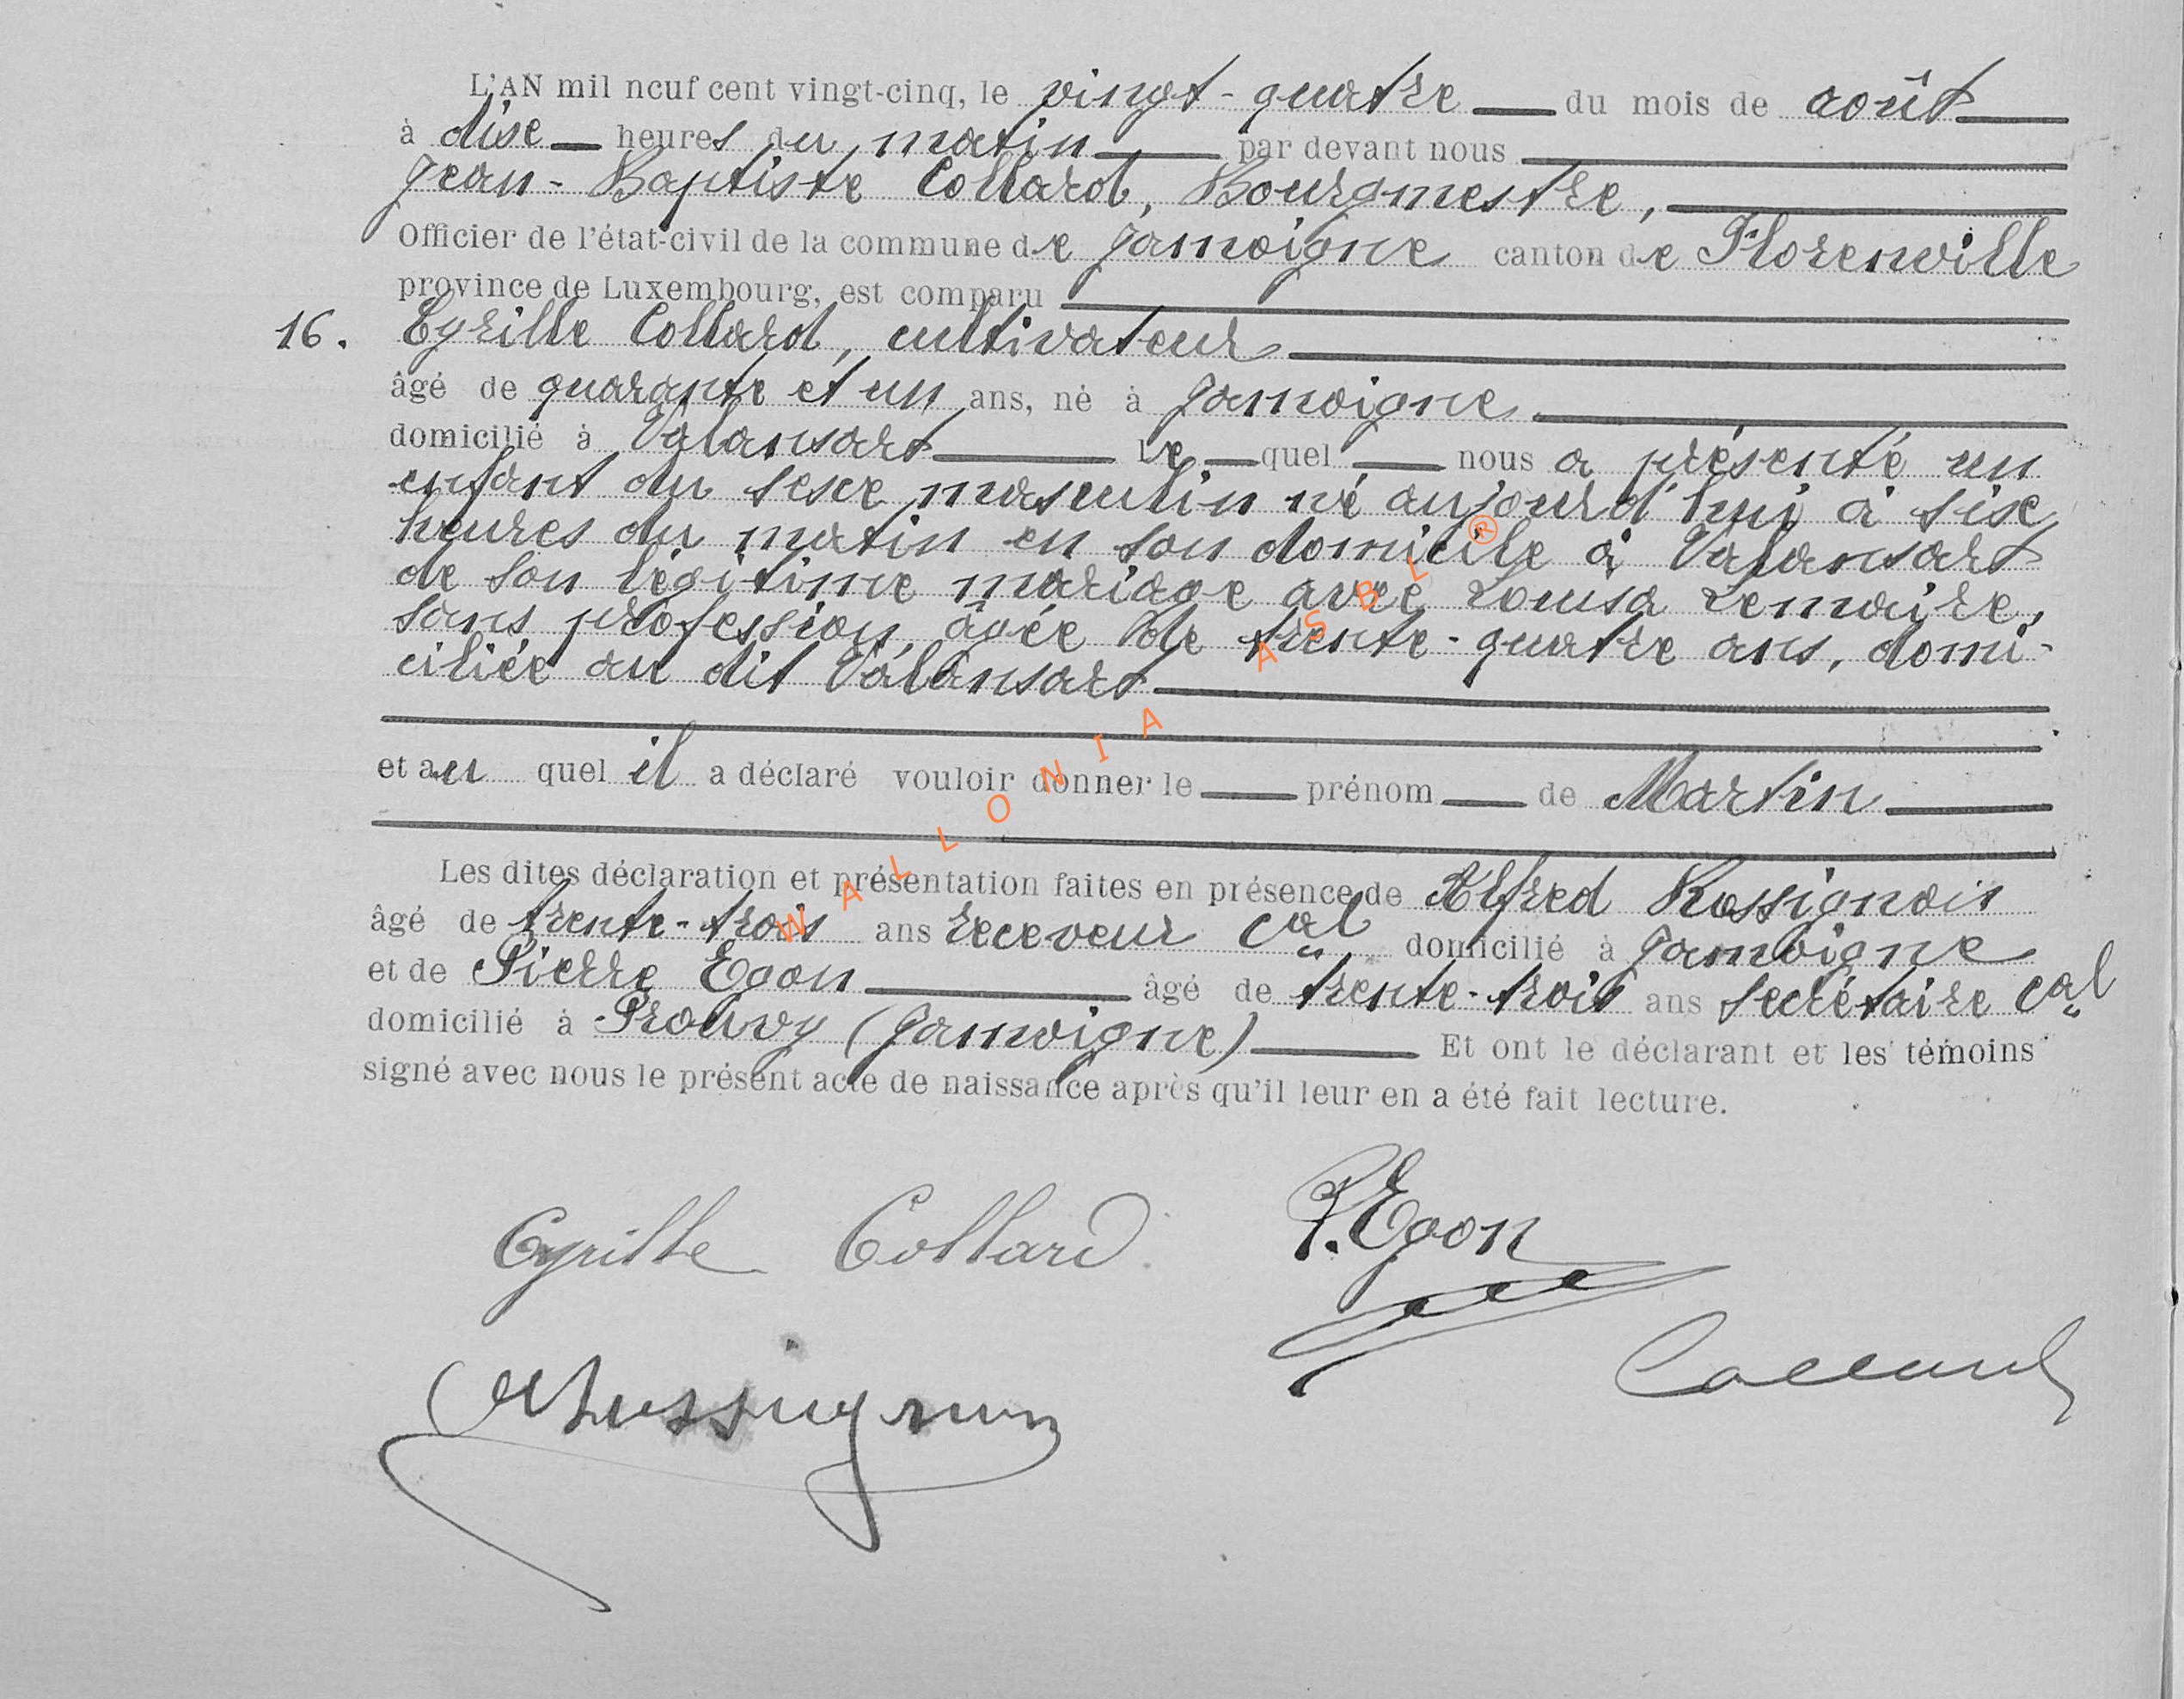 L'AN mil neuf cent vingt-cinq, le vingt-quatre du mois de août
à dixe heures du matin par devant nous
Jean-Baptiste Collard, Bourgmestre,
Officier de l'état-civil de la commune de Jamoigne canton de Florenville
province de Luxembourg, est comparu
16. Cyrille Collard, cultivateur
âgé de quarante et un ans, né à Jamoigne
domicilié à Valansart le quel nous a présenté un
enfant du sexe masculin né aujourd'hui à sixe
heures du matin en son domicile à Valansart
de son légitime mariage avec Louisa Lemaire,
sans profession, âgée de trente-quatre ans, domi-
ciliée au dit Valansart
et au quel il a déclaré vouloir donner le prénom de Martin
Les dites déclaration et présentation faites en présence de Alfred Rossignon
âgé de trente-trois ans receveur cal domicilié à Jamoigne
et de Pierre Egon âgé de trente-trois ans secrétaire cal
domicilié à Prouvy (Jamoigne) Et ont le déclarant et les témoins
signé avec nous le présent acte de naissance après qu'il leur en a été fait lecture.
Cyrille Collard P. Egon
ARossignon Collard
WALLONIA ASBL ®